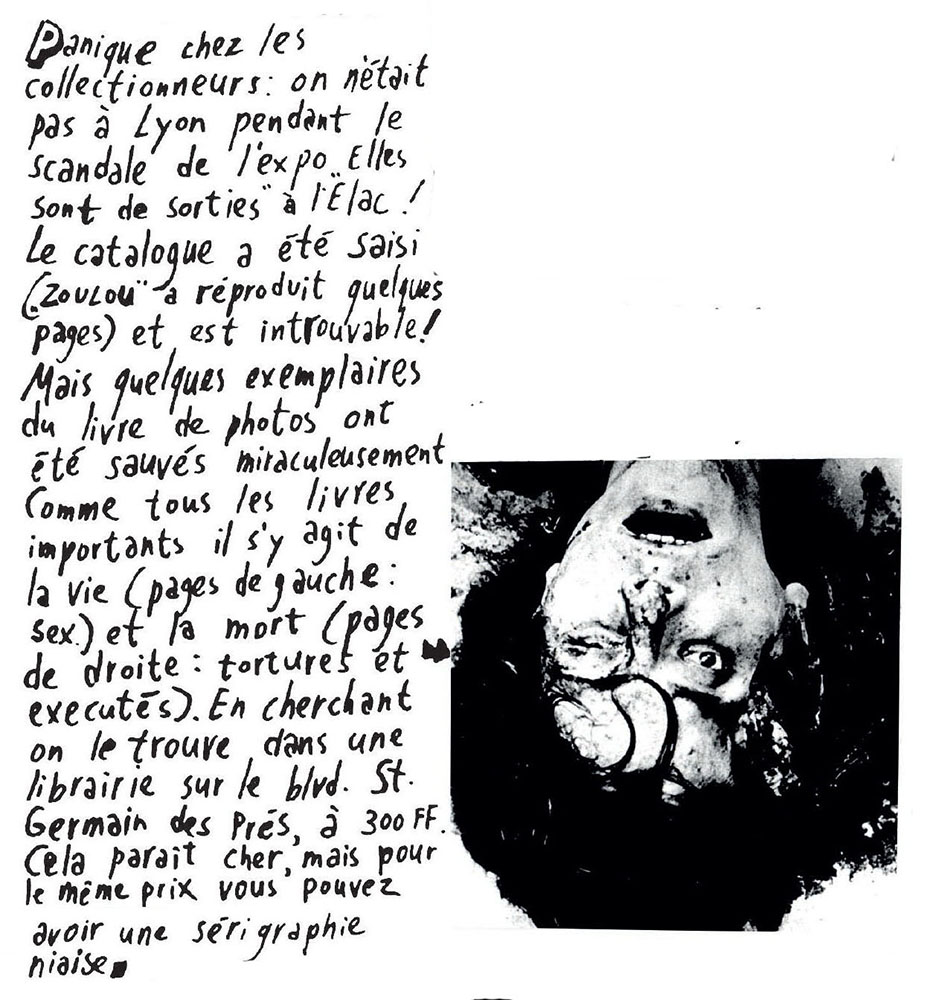 Panique chez les
collectionneurs: on n'était
pas à Lyon pendant le
scandale de l'expo "Elles
sont de sorties" à l'Elac!
Le catalogue a été saisi
("ZOULOU" a réproduit quelques
pages) et est introuvable!
Mais quelques exemplaires
du livre de photos ont
été sauvés miraculeusement
Comme tous les livres
importants il s'y agit de
la vie (pages de gauche:
sex.) et la mort (pages
de droite: tortures et
executés). En cherchant
on le trouve dans une
librairie sur le blvd. St.
Germain des Prés, à 300 FF.
Cela parait cher, mais pour
le même prix vous pouvez
avoir une sérigraphie
niaise.